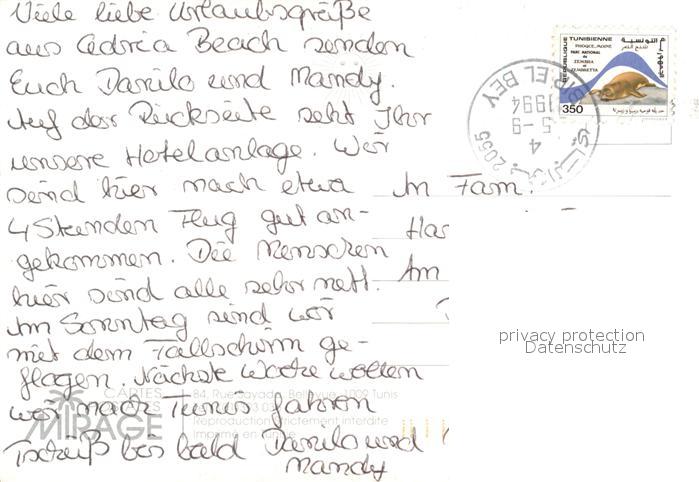 Viele liebe Urlaubsgrüße
aus Adria Beach senden
Euch Danilo und Mandy.
Auf der Rückseite seht Ihr
unsere Hotelanlage. Wir
sind hier nach etwa
4 Stunden Flug gut an-
gekommen. Die Menschen
hier sind alle sehr nett.
Am Sonntag sind wir
mit dem Fallschirm ge-
flogen. Nächste Woche wollen
wir nach Tunis fahren
Tschüß bis bald Danilo und
Mandy
An Fam.
Har
Am
REPUBLIQUE TUNISIENNE
البريد التونسية
PHOQUE MOINE
PARC NATIONAL
de ZEMBRA
et ZEMBRETTA
350
EL BEY
1994
5-9
4
2055
privacy protection
Datenschutz
CARTES
MIRAGE
84, Rue 1002 Tunis
Reproduction strictement interdite
Imprimé en